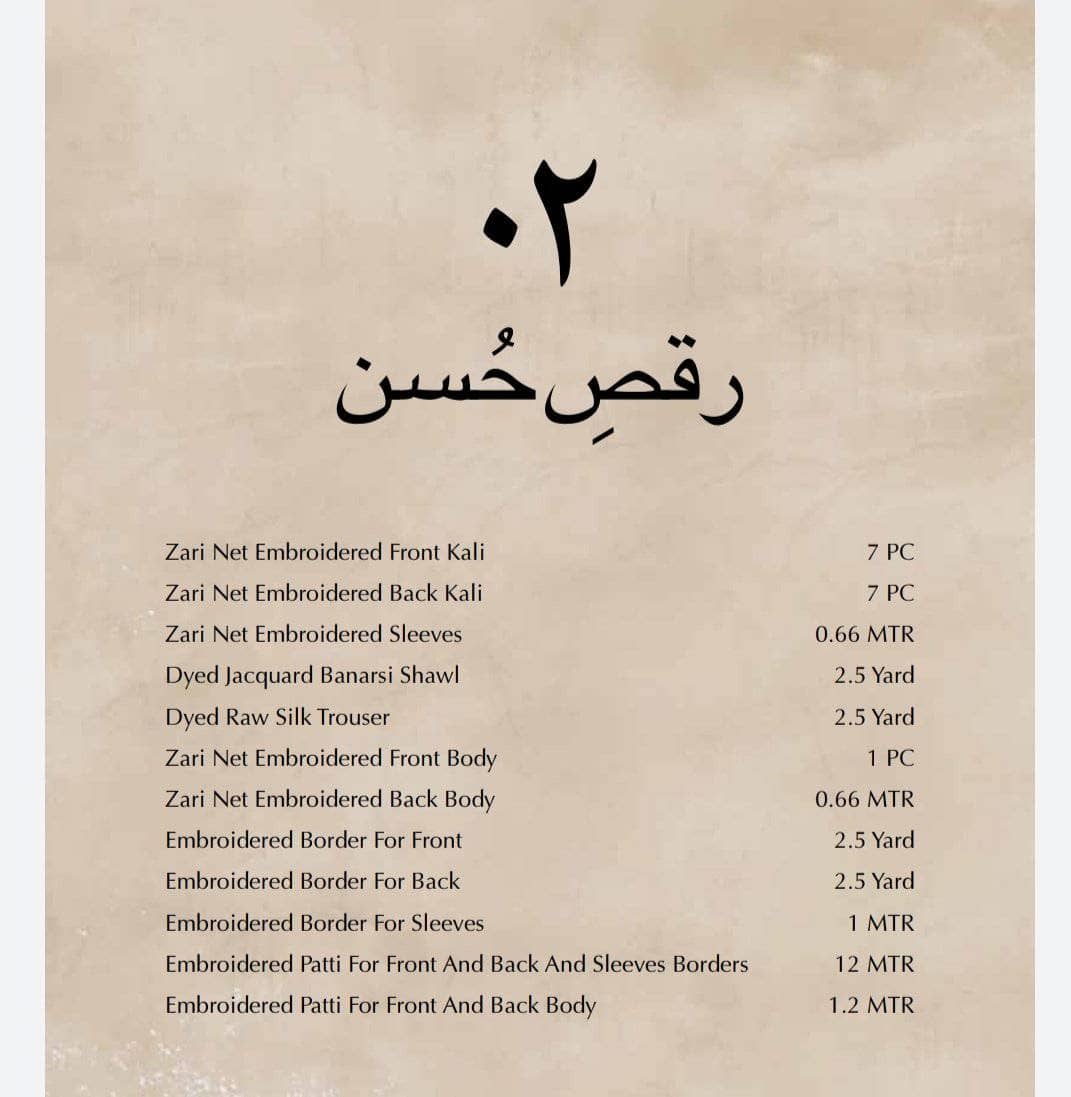 ۰۲
رقصِ حُسن
Zari Net Embroidered Front Kali 7 PC
Zari Net Embroidered Back Kali 7 PC
Zari Net Embroidered Sleeves 0.66 MTR
Dyed Jacquard Banarsi Shawl 2.5 Yard
Dyed Raw Silk Trouser 2.5 Yard
Zari Net Embroidered Front Body 1 PC
Zari Net Embroidered Back Body 0.66 MTR
Embroidered Border For Front 2.5 Yard
Embroidered Border For Back 2.5 Yard
Embroidered Border For Sleeves 1 MTR
Embroidered Patti For Front And Back And Sleeves Borders 12 MTR
Embroidered Patti For Front And Back Body 1.2 MTR